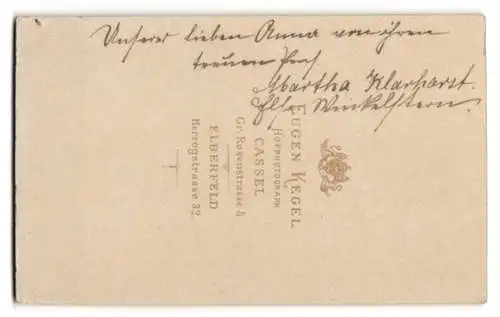 Unserer lieben Anna von ihren
treuen
Martha Klarhorst.
Else Winkelstern.
EUGEN KEGEL
HOFPHOTOGRAPH
CASSEL
Gr. Rosenstrasse 5
ELBERFELD
Herzogstrasse 32.